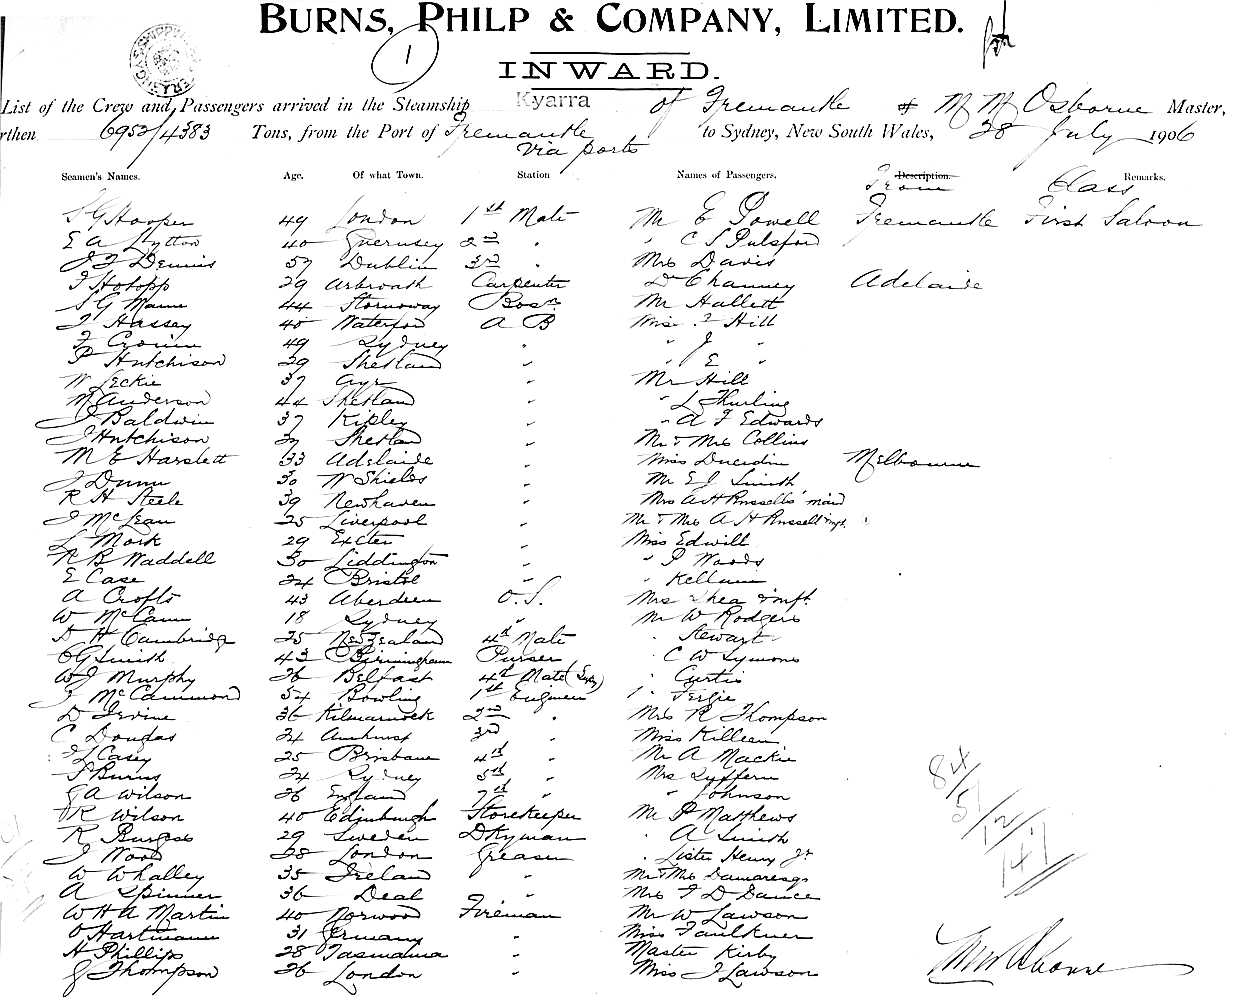 BURNS, PHILP & COMPANY, LIMITED.
1
INWARD.
List of the Crew and Passengers arrived in the Steamship Kyarra of Fremantle M M Osborne Master,
rthen 6953/4383 Tons, from the Port of Fremantle to Sydney, New South Wales, 28 July 1906
via ports
Seamen's Names. Age. Of what Town. Station Names of Passengers. Description. Remarks.
From Class
S G Hooper 49 London 1st Mate Mr E Powell Fremantle First Saloon
E A Lytton 40 Guernsey 2nd " " C S Pulsford
J F Dennis 57 Dublin 3rd " Mrs Davis
J Hotopp 29 Arbroath Carpenter Dr Channey Adelaide
S G Mann 44 Stornoway Bosn Mr Hallett
J Hassey 40 Waterford A B Miss F Hill
F Cronin 49 Sydney " " J "
P Hutchison 29 Shetland " " E "
W Leckie 37 Ayr " Mr Hill
M Anderson 44 Shetland " " L Thurling
J Baldwin 37 Ripley " " A F Edwards
J Hutchison 27 Shetland " Mr & Mrs Collins
M E Harslett 33 Adelaide " Miss Melbourne
J Dunn 30 N Shields " Mr E J Smith
R H Steele 39 Newhaven " Mrs A H Russells' maid
J McLean 25 Liverpool " Mr & Mrs A H Russell & inft
L Mork 29 Exeter " Miss Edwill
R B Waddell 30 Liddington " " P Woods
E Case 24 Bristol " " Kellam
A Crofts 43 Aberdeen O.S. Mrs Shea & inft
W McCann 18 Sydney " Mr W Rodgers
A H Cambridge 25 New Zealand 4th Mate " Stewart
C G Smith 43 Birmingham Purser " C W Symons
W J Murphy 26 Belfast 4th Mate (Sydy) " Curtis
J McCammond 54 Bowling 1st Engineer " Fergie
D Irvine 36 Kilmarnock 2nd " Mrs R Thompson
C Douglas 24 Amhurst 3rd " Miss Killeen
J L Casey 25 Brisbane 4th " Mr A Mackie
T Burns 24 Sydney 5th " Mrs
G A Wilson 26 England 7th " " Johnson
R Wilson 40 Edinburgh Storekeeper Mr P Matthews
R Burgess 29 Sweden Dkyman " A Smith
J Wood 28 London Greaser " Lister Henry Jr
W Whalley 35 Ireland " Mr & Mrs Damaresq
A Spinner 36 Deal " Mrs F D Dance
W H A Martin 40 Norwood Fireman Mr W Lawson
O Hartmann 31 Germany " Miss Faulkner
H Phillips 28 Tasmania " Master Kirby
G Thompson 26 London " Miss J Lawson
84/5/12/147